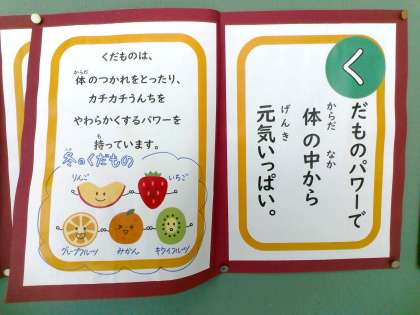 くだものパワーで
からだ なか
体の中から
げんき
元気いっぱい。
くだものは、
からだ
体のつかれをとったり、
カチカチうんちを
やわらかくするパワーを
も
持っています。
冬のくだもの
りんご
いちご
グレープフルーツ
みかん
キウイフルーツ